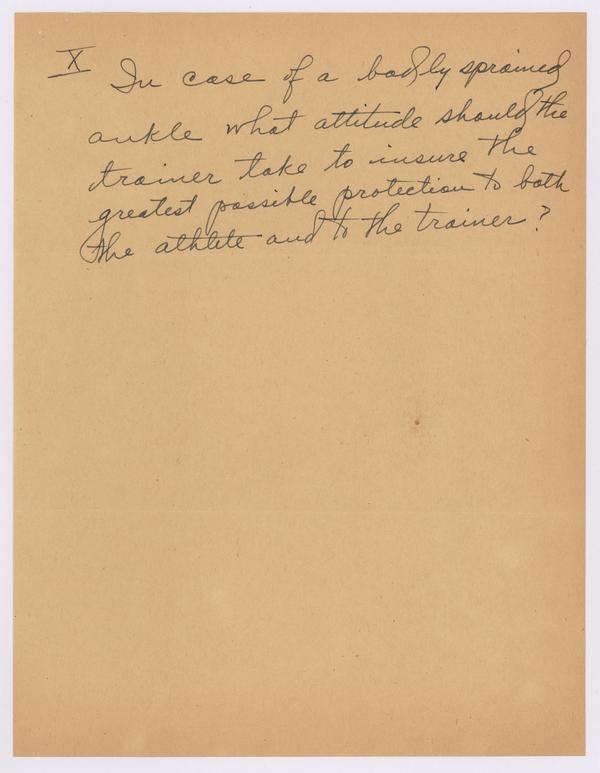 X In case of a badly sprained
ankle what attitude should the
trainer take to insure the
greatest possible protection to both
the athlete and to the trainer?